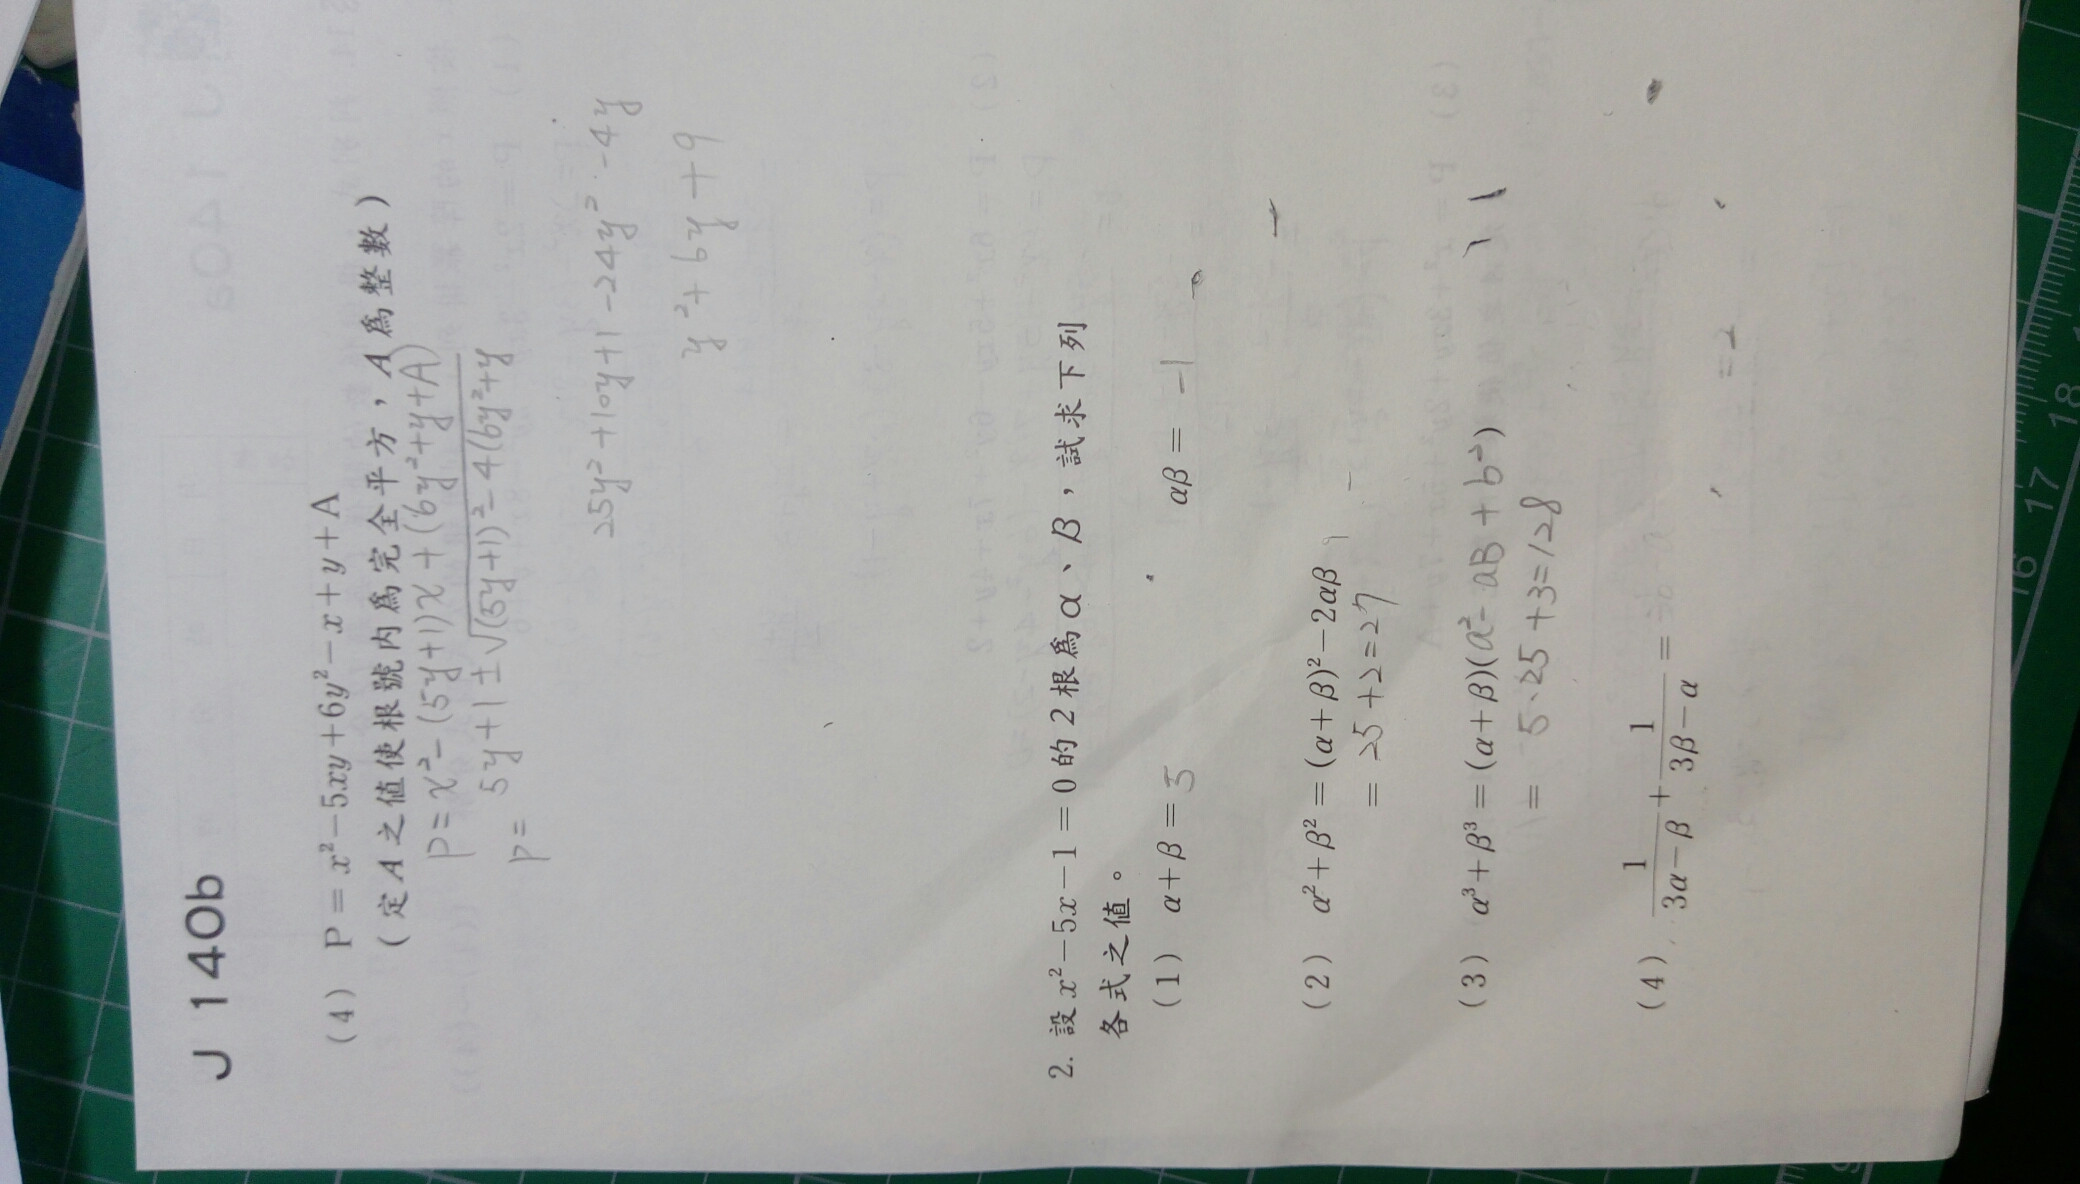 J 140b
(4) P = x² − 5xy + 6y² − x + y + A
(定A之值使根號內為完全平方，A為整數)
P = x² − (5y+1)x + (6y²+y+A)
P = 5y+1 ± √(5y+1)² − 4(6y²+y
25y² + 10y + 1 − 24y² − 4y
y² + 6y + 9
2. 設 x² − 5x − 1 = 0 的 2 根為 α、β，試求下列
各式之值。
(1) α + β = 5 αβ = −1
(2) α² + β² = (α + β)² − 2αβ
= 25 + 2 = 27
(3) α³ + β³ = (α + β)(a² − aB + b²)
= 5·25 + 3 = 128
(4) 1/(3α − β) + 1/(3β − α) =
= 2